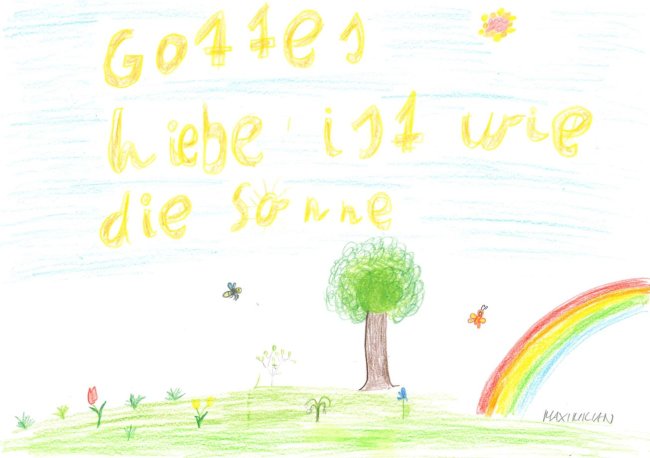 Gottes
Liebe ist wie
die Sonne
MAXIMILIAN